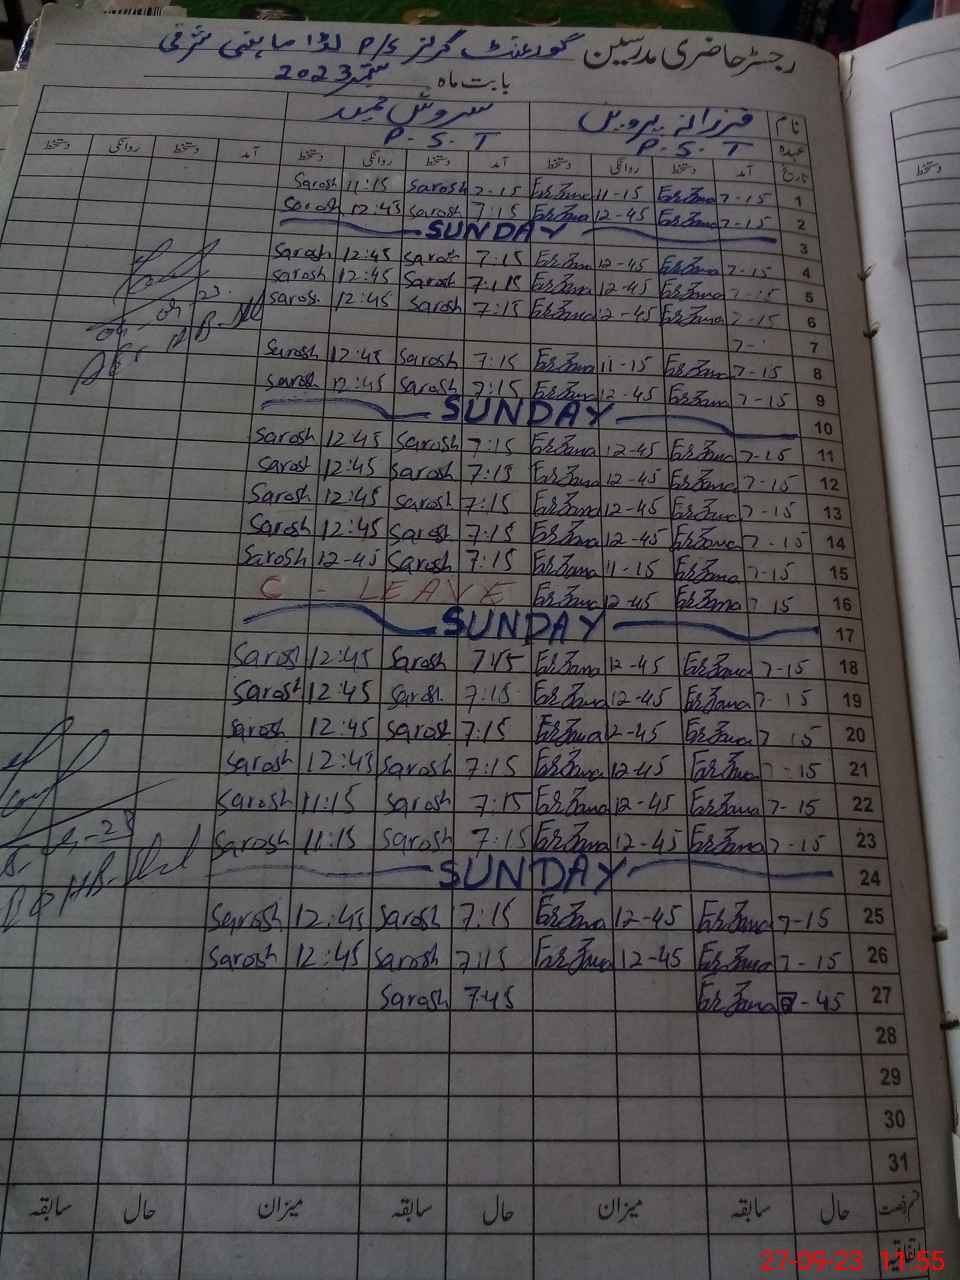 رجسٹر حاضری مدرسین گورنمنٹ گرلز P/S لڈا مافی شرقی
بابت ماہ ستمبر 2023
نام فرزانہ پروین سروش حمید
عہدہ P.S.T P.S.T
تاریخ آمد دستخط روانگی دستخط آمد دستخط روانگی دستخط آمد دستخط روانگی دستخط
1 7-15 Farzana 11-15 Farzana 7-15 Sarosh 11:15 Sarosh
2 7-15 Farzana 12-45 Farzana 7:15 Sarosh 12:45 Sarosh
3 SUNDAY
4 7-15 Farzana 12-45 Farzana 7:15 Sarosh 12:45 Sarosh
5 7-15 Farzana 12-45 Farzana 7:15 Sarosh 12:45 Sarosh
6 7-15 Farzana 12-45 Farzana 7:15 Sarosh 12:45 Sarosh
7 7-
8 7-15 Farzana 11-15 Farzana 7:15 Sarosh 12:45 Sarosh
9 7-15 Farzana 12-45 Farzana 7:15 Sarosh 12:45 Sarosh
10 SUNDAY
11 7-15 Farzana 12-45 Farzana 7:15 Sarosh 12:45 Sarosh
12 7-15 Farzana 12-45 Farzana 7:15 Sarosh 12:45 Sarosh
13 7-15 Farzana 12-45 Farzana 7:15 Sarosh 12:45 Sarosh
14 7-15 Farzana 12-45 Farzana 7:15 Sarosh 12:45 Sarosh
15 7-15 Farzana 11-15 Farzana 7:15 Sarosh 12-45 Sarosh
16 7-15 Farzana 12-45 Farzana C - LEAVE
17 SUNDAY
18 7-15 Farzana 12-45 Farzana 7:15 Sarosh 12:45 Sarosh
19 7-15 Farzana 12-45 Farzana 7:15 Sarosh 12:45 Sarosh
20 7-15 Farzana 12-45 Farzana 7:15 Sarosh 12:45 Sarosh
21 7-15 Farzana 12-45 Farzana 7:15 Sarosh 12:45 Sarosh
22 7-15 Farzana 12-45 Farzana 7:15 Sarosh 11:15 Sarosh
23 7-15 Farzana 12-45 Farzana 7:15 Sarosh 11:15 Sarosh
24 SUNDAY
25 7-15 Farzana 12-45 Farzana 7:15 Sarosh 12:45 Sarosh
26 7-15 Farzana 12-45 Farzana 7:15 Sarosh 12:45 Sarosh
27 -45 Farzana 7:45 Sarosh
28
29
30
31
قسم رخصت حال سابقہ میزان حال سابقہ میزان حال سابقہ
اتفاقیہ
27-09-23 11:55